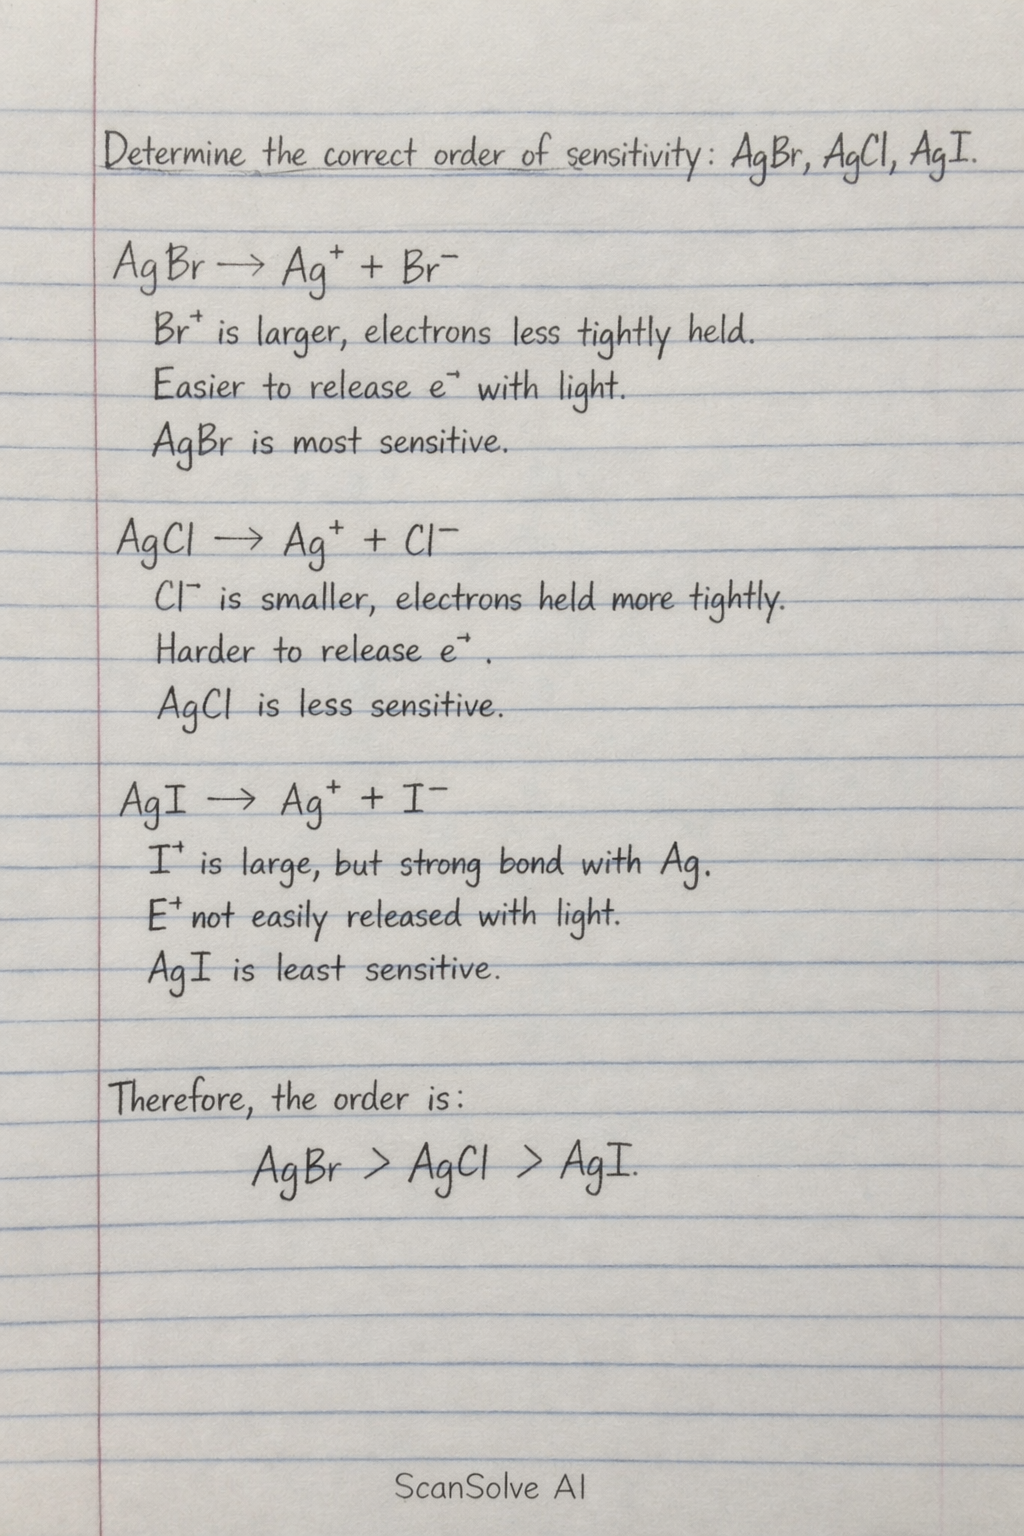 Determine the correct order of sensitivity: AgBr, AgCl, AgI.
AgBr → Ag⁺ + Br⁻
Br⁺ is larger, electrons less tightly held.
Easier to release e⁻ with light.
AgBr is most sensitive.
AgCl → Ag⁺ + Cl⁻
Cl⁻ is smaller, electrons held more tightly.
Harder to release e⁺.
AgCl is less sensitive.
AgI → Ag⁺ + I⁻
I⁺ is large, but strong bond with Ag.
E⁺ not easily released with light.
AgI is least sensitive.
Therefore, the order is:
AgBr > AgCl > AgI.
ScanSolve AI